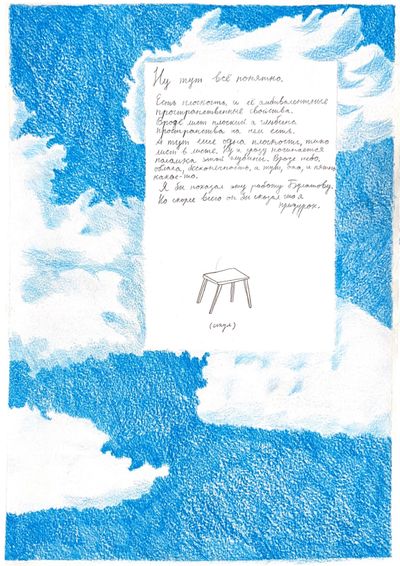 Ну тут всё понятно.
Есть плоскость и её амбивалентные
пространственные свойства.
Вроде лист плоский а глубина
пространства на нем есть.
А тут ещё одна плоскость, типо
лист в листе. Ну и сразу получается
такая эта глубина. Вроде небо,
облака, бесконечность, и тут, бах, и пятно
какое-то.
Я бы показал эту работу
Но скорее всего он бы сказал что я
придурок.
(стул)